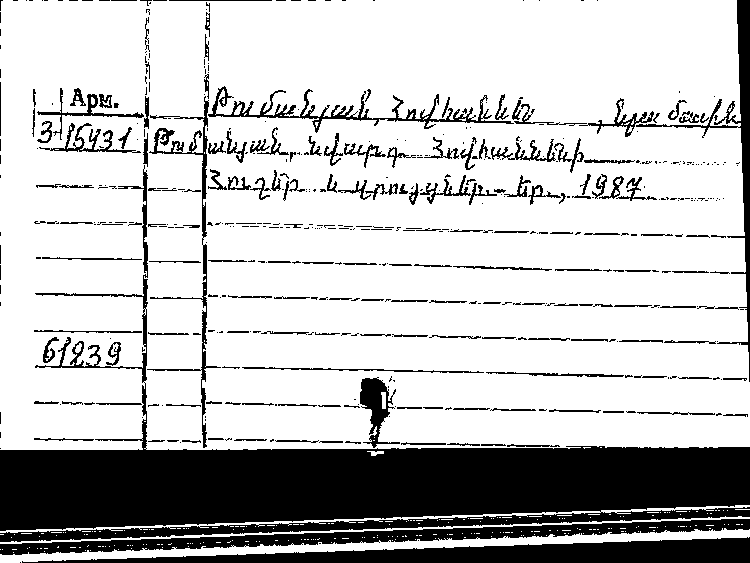 Арм.
Թումանյան, Հովհաննես, նրա մասին
3-15431 Թումանյան, Նվարդ Հովհաննեսի
Հուշեր և զրույցներ.- Եր., 1987
61239